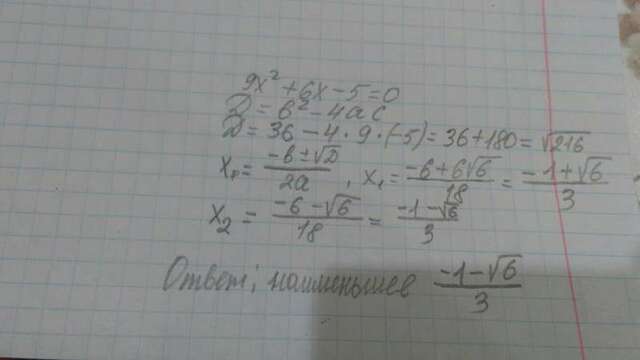 9x² + 6x - 5 = 0
D = b² - 4ac
D = 36 - 4 · 9 · (-5) = 36 + 180 = √216
x₁ = (-b ± √D)/2a , x₁ = (-6 + 6√6)/18 = (-1 + √6)/3
x₂ = (-6 - √6)/18 = (-1 - √6)/3
Ответ: наименьшее (-1 - √6)/3